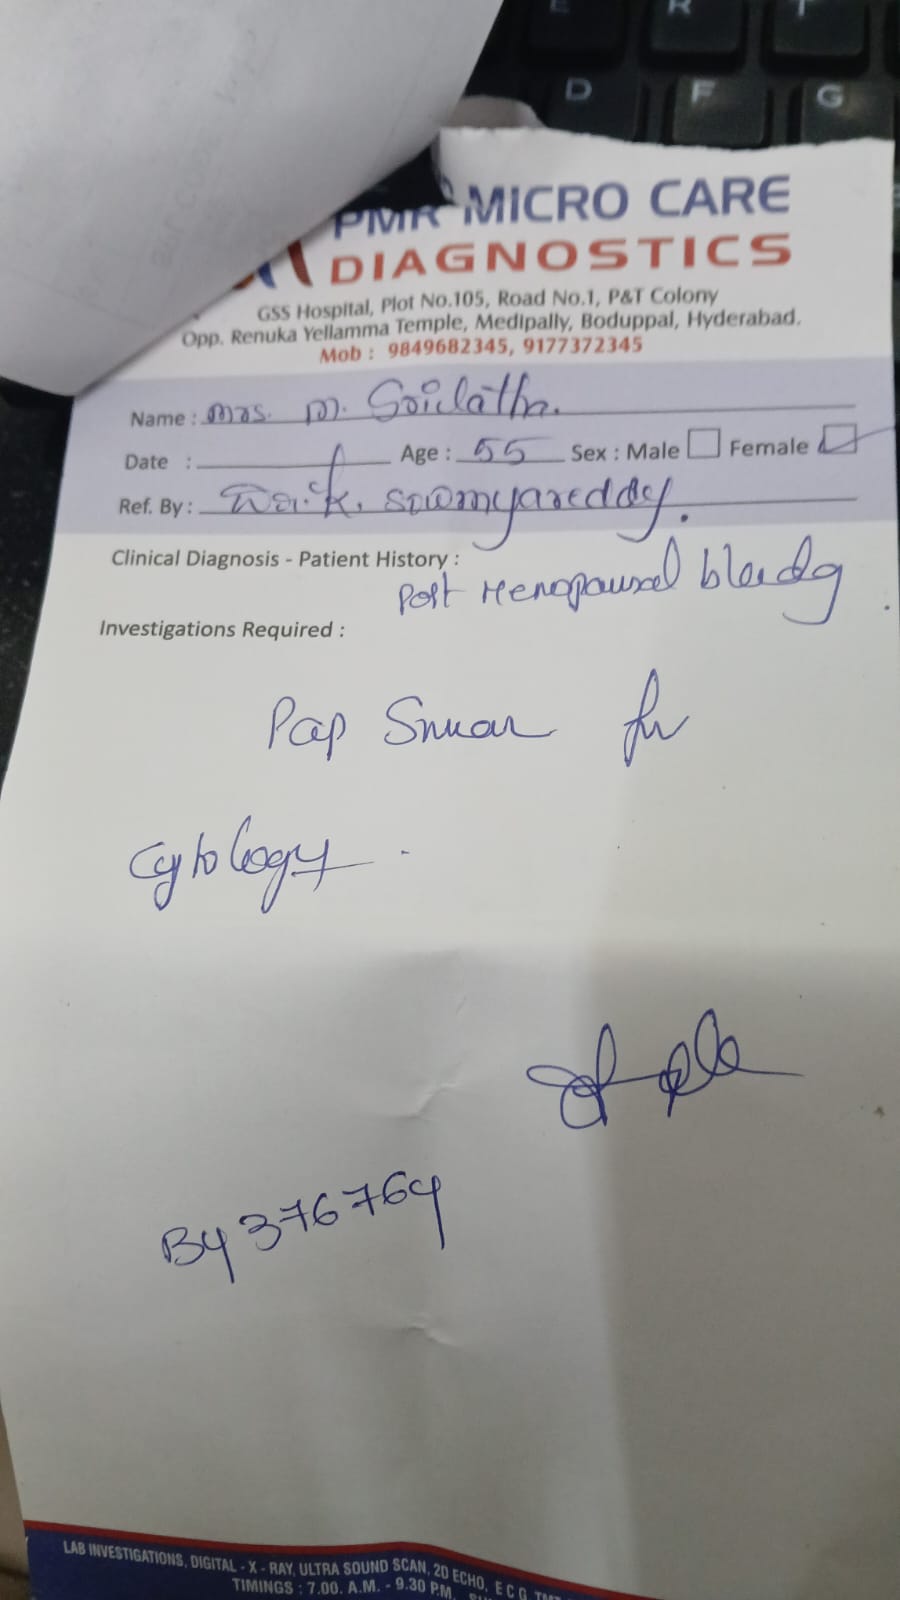 E R T
D F G
PMR MICRO CARE
DIAGNOSTICS
GSS Hospital, Plot No.105, Road No.1, P&T Colony
Opp. Renuka Yellamma Temple, Medipally, Boduppal, Hyderabad.
Mob : 9849682345, 9177372345
Name : Mrs. M. Srilatha.
Date : Age : 55 Sex : Male Female
Ref. By : Dr. K. sowmyareddy.
Clinical Diagnosis - Patient History :
Post Menopausal bleedg
Investigations Required :
Pap Smear for
Cytology.
By376764
LAB INVESTIGATIONS, DIGITAL - X - RAY, ULTRA SOUND SCAN, 2D ECHO, E C G,
TIMINGS : 7.00. A.M. - 9.30 P.M.